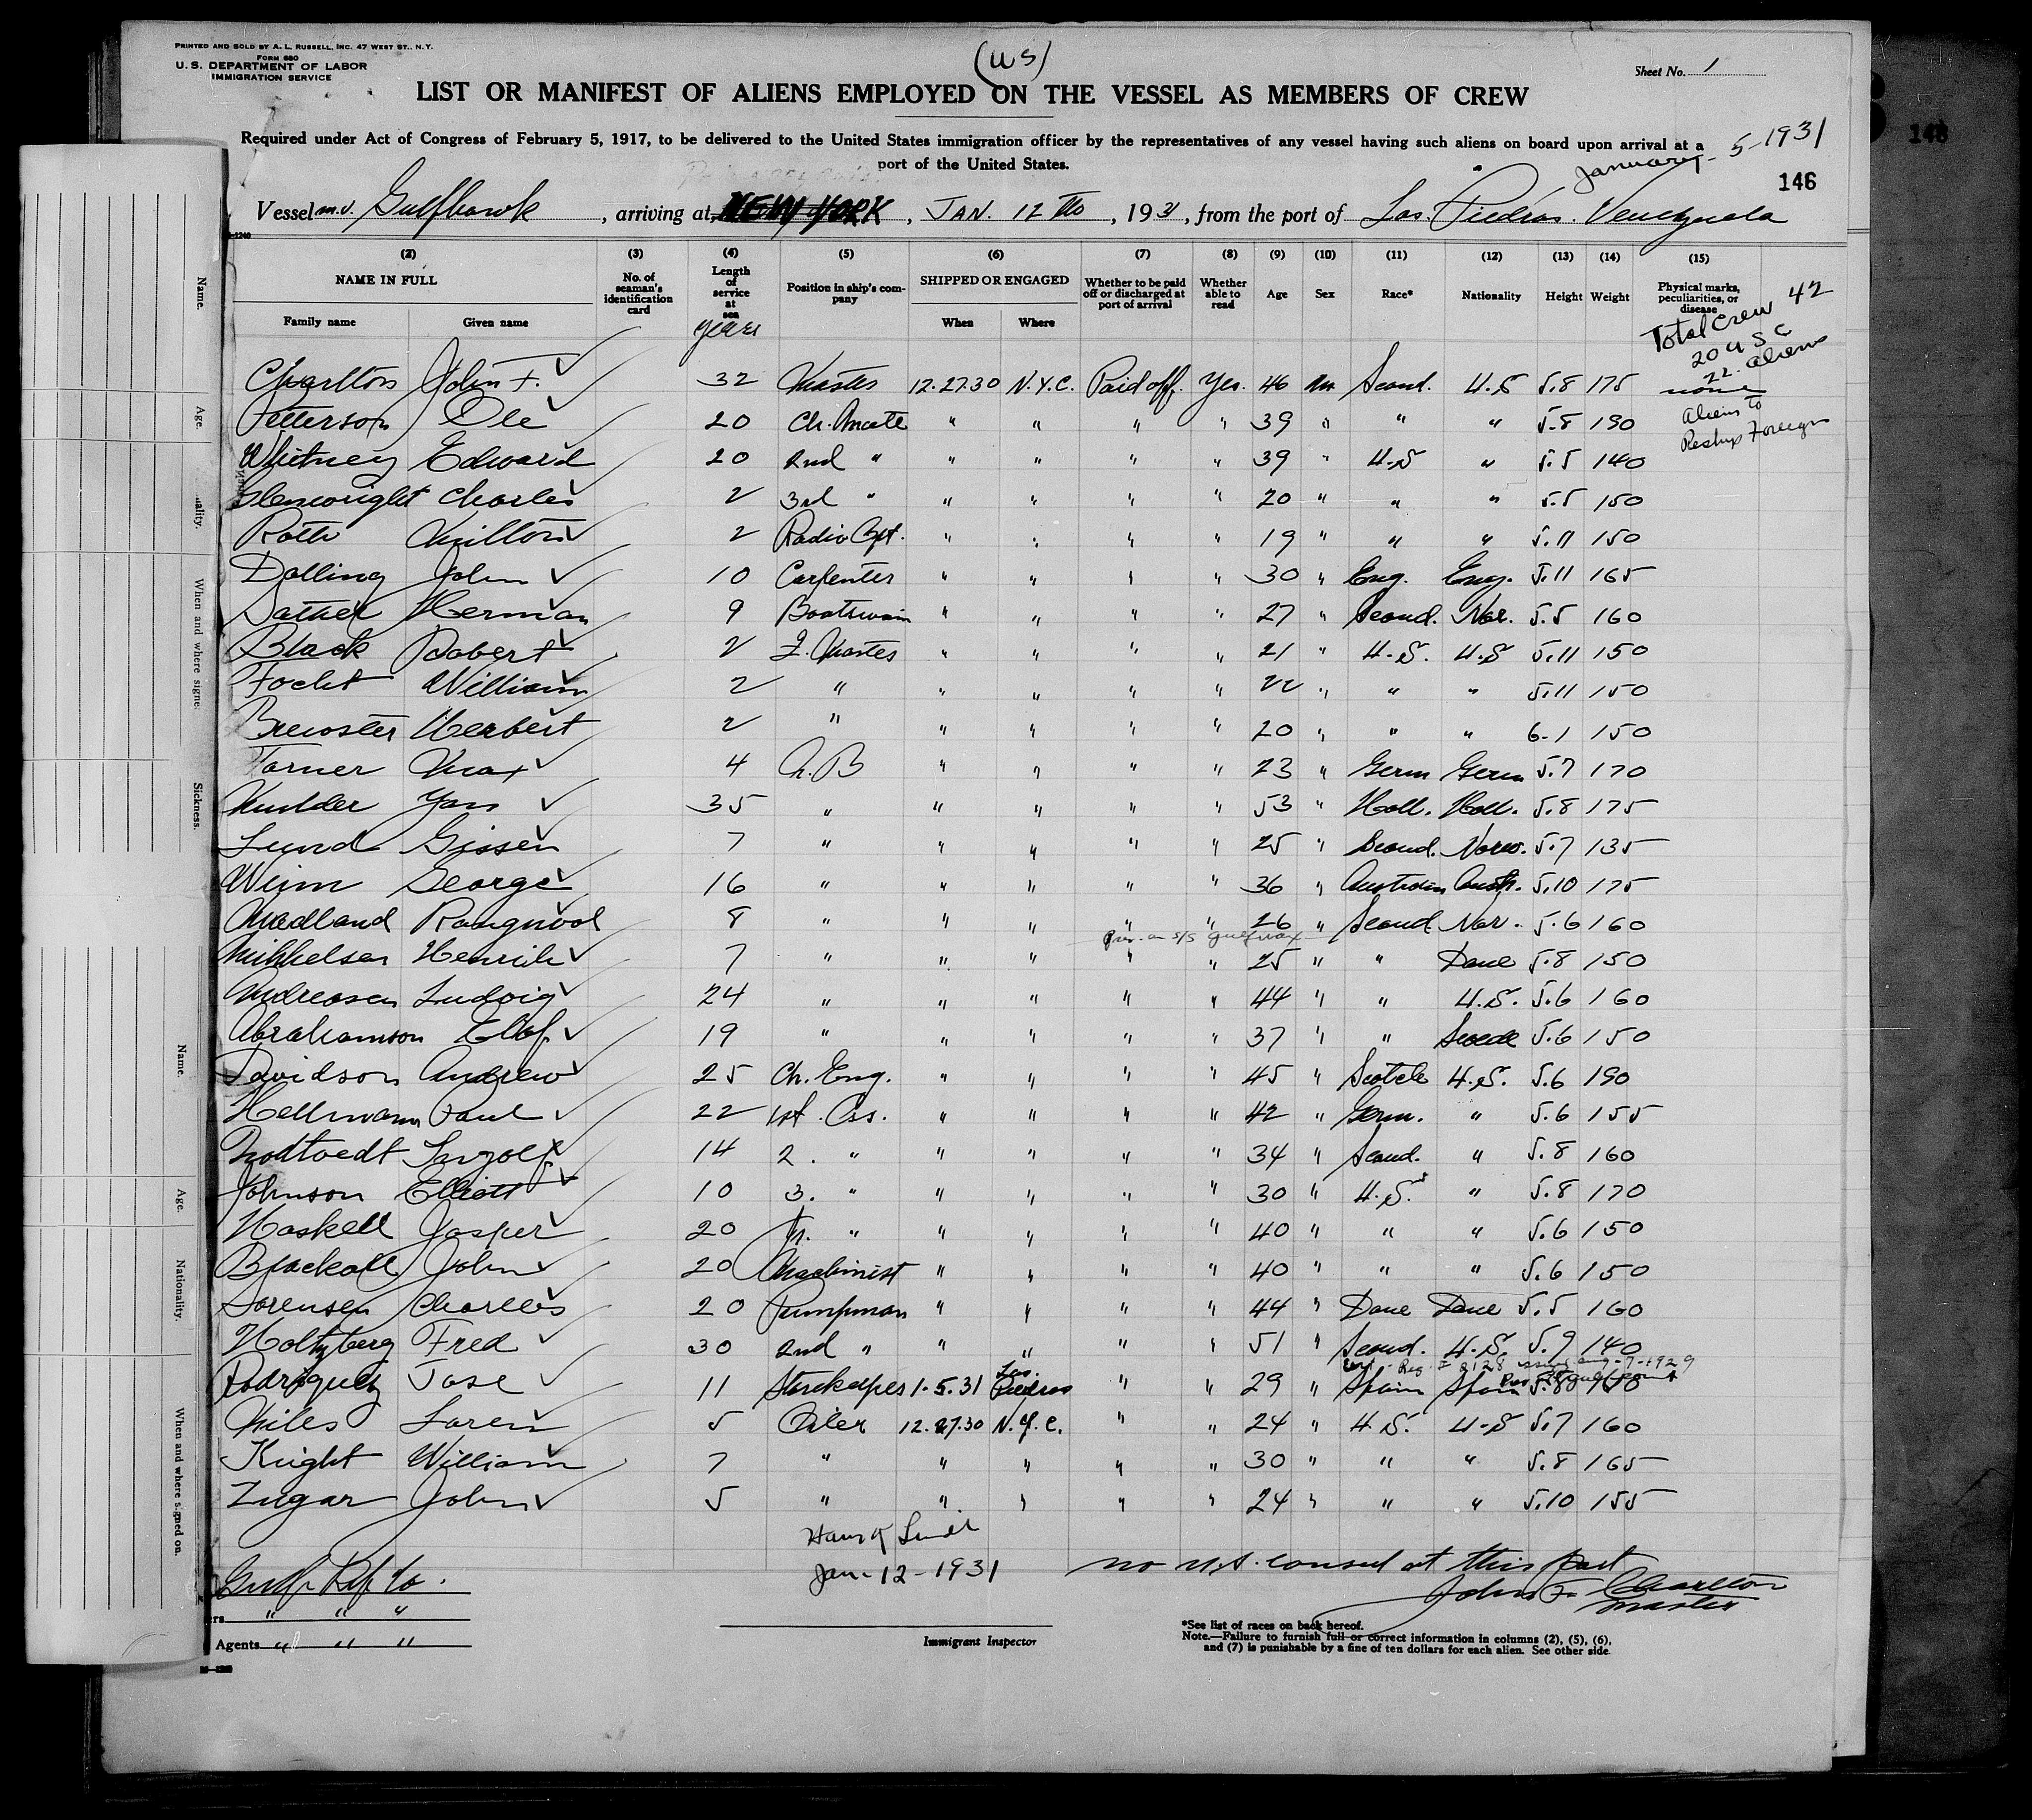 PRINTED AND SOLD BY A. L. RUSSELL, INC. 47 WEST ST., N. Y.
FORM 680
U. S. DEPARTMENT OF LABOR
IMMIGRATION SERVICE
(US)
Sheet No. 1
LIST OR MANIFEST OF ALIENS EMPLOYED ON THE VESSEL AS MEMBERS OF CREW
Required under Act of Congress of February 5, 1917, to be delivered to the United States immigration officer by the representatives of any vessel having such aliens on board upon arrival at a
port of the United States.
January - 5 - 1931
146
148
Vessel m.v. Gulfhawk, arriving at NEW YORK, JAN. 12 th, 1931, from the port of Las Piedras Venezuela
(2) (3) (4) (5) (6) (7) (8) (9) (10) (11) (12) (13) (14) (15)
NAME IN FULL No. of seaman's identification card Length of service at sea Position in ship's company SHIPPED OR ENGAGED Whether to be paid off or discharged at port of arrival Whether able to read Age Sex Race* Nationality Height Weight Physical marks, peculiarities, or disease
Family name Given name years When Where
Total Crew 42
20 U S C
22 aliens
Charlton John F. 32 Master 12.27.30 N.Y.C. Paid off. Yes. 46 m Scand. U.S 5.8 175 none
Petterson Ole 20 Ch. Mate " " " " 39 " " " 5-8 190
Aliens to
Reship Foreign
Whitney Edward 20 2nd " " " " " 39 " U.S " 5.5 140
Glenwright Charles 2 3rd " " " " " 20 " " " 5.5 150
Roth Milton 2 Radio Opt. " " " " 19 " " " 5.11 150
Dolling John 10 Carpenter " " " " 30 " Eng. Eng. 5.11 165
Sather Herman 9 Boatswain " " " " 27 " Scand. Nor. 5.5 160
Black Robert 2 Q. Master " " " " 21 " U.S. U.S 5.11 150
Focht William 2 " " " " " 22 " " " 5.11 150
Brewster Herbert 2 " " " " " 20 " " " 6-1 150
Torner Max 4 A.B " " " " 23 " Germ Germ 5.7 170
Mulder Yan 35 " " " " " 53 " Holl. Holl. 5.8 175
Lund Gissen 7 " " " " " 25 " Scand. Norw. 5.7 135
Winn George 16 " " " " " 36 " Australian Aust. 5.10 175
Medland Rangwool 8 " " " " " 26 " Scand Nor. 5.6 160
Prev. on S/S Gulfwax
Mikkelsen Henrich 7 " " " " " 25 " " Dane 5.8 150
Andreasen Ludvig 24 " " " " " 44 " " U.S. 5.6 160
Abrahamson Olof 19 " " " " " 37 " " Swede 5.6 150
Davidson Andrew 25 Ch. Eng. " " " " 45 " Scotch U.S. 5.6 190
Hellmann Paul 22 1st. Ass. " " " " 42 " Germ. " 5.6 155
Nodtvedt Ingolf 14 2. " " " " " 34 " Scand. " 5.8 160
Johnson Elliott 10 3. " " " " " 30 " U.S. " 5.8 170
Haskell Jasper 20 Jr. " " " " " 40 " " " 5.6 150
Blackall John 20 Machinist " " " " 40 " " " 5.6 150
Sorensen Charles 20 Pumpman " " " " 44 " Dane Dane 5.5 160
Holtzberg Fred 30 2nd " " " " " 51 " Scand. U.S. 5.9 140
Rodriguez Jose 11 Storekeeper 1.5.31 Las Piedras " " 29 " Spain Spain 5.8
Miles Loren 5 Oiler 12.27.30 N.Y.C. " " 24 " U.S. U.S 5.7 160
Knight William 7 " " " " " 30 " " " 5.8 165
Zugar John 5 " " " " " 24 " " " 5.10 155
Jan-12-1931
no U.S. consul at this port
John F. Charlton
master
Gulf Ref Co.
ers " " "
Agents " " "
Immigrant Inspector
*See list of races on back hereof.
Note.—Failure to furnish full or correct information in columns (2), (5), (6),
and (7) is punishable by a fine of ten dollars for each alien. See other side.
Name.
Age.
ality.
When and where signe
Sickness.
Name.
Age.
Nationality.
When and where signed on.